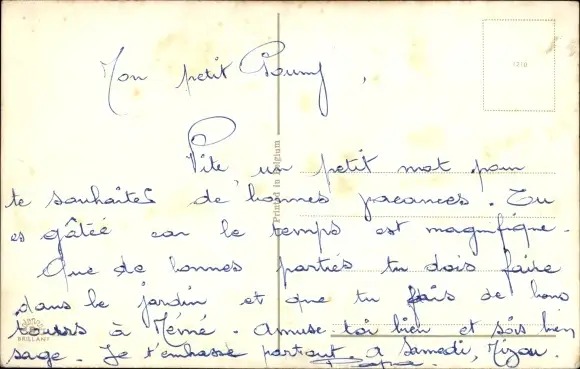 Mon petit Poumy,
1210
Vite un petit mot pour
te souhaiter de bonnes vacances. Tu
es gâtée car le temps est magnifique.
Que de bonnes parties tu dois faire
dans le jardin et que tu fais de bons
à Mémé. Amuse toi bien et sois bien
sage. Je t'embrasse partout. A Samedi, Mizou.
Papa.
Printed in Belgium
BRILLANT